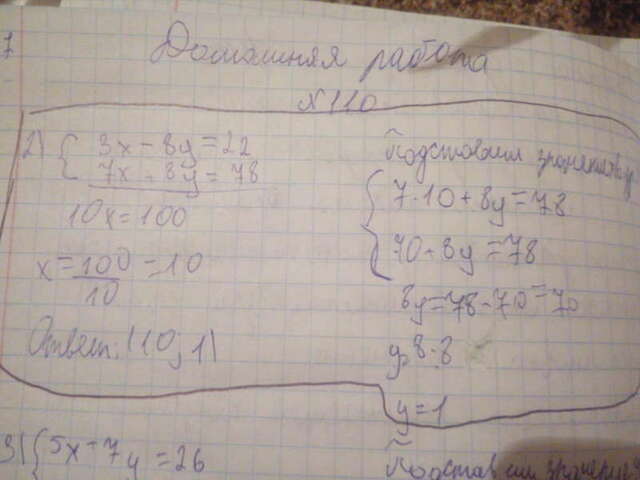 Домашняя работа
№110
2) { 3x - 8y = 22
7x - 8y = 78
10x = 100
x = 100/10 = 10
Ответ: (10; 1)
Подставим значение
{ 7·10 + 8y = 78
70 + 8y = 78
8y = 78 - 70 = 70
y 8:8
y = 1
3) { 5x - 7y = 26
Подставим